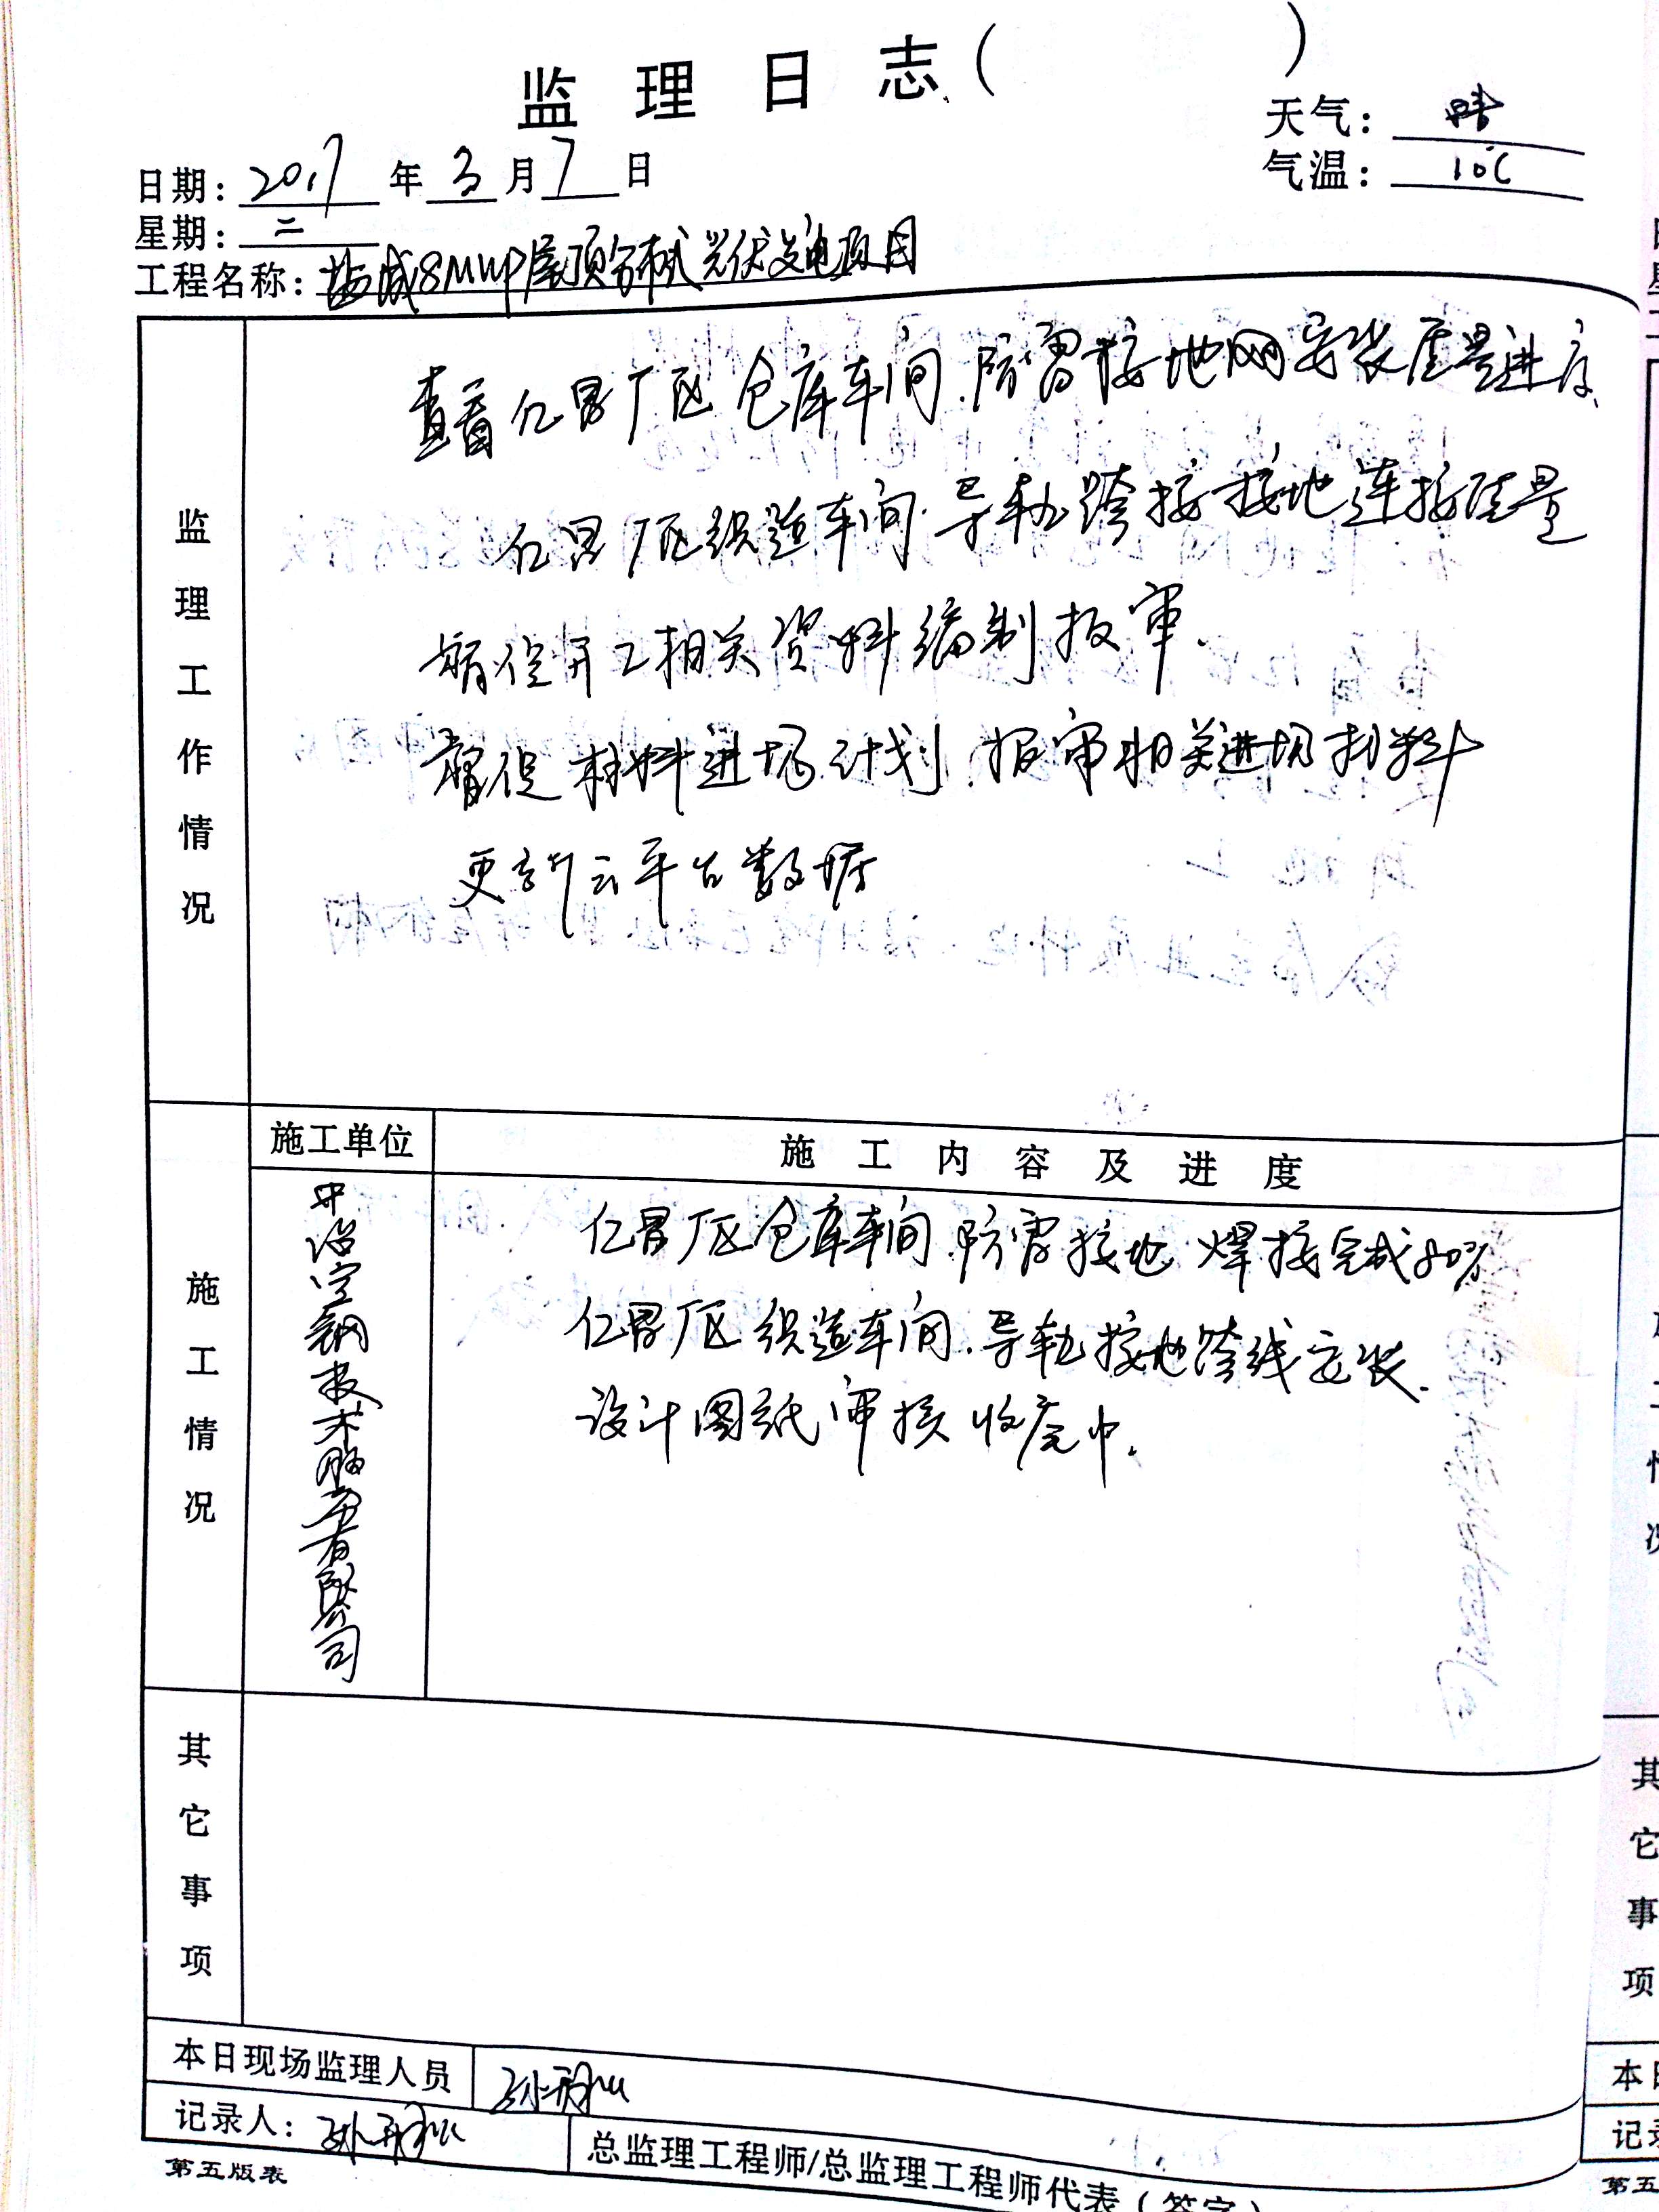 监理日志( )
天气: 晴
日期: 2017 年 3 月 7 日
气温: 10℃
星期: 二
工程名称: 盐城8MWP屋顶分布式光伏发电项目
监理工作情况
查看仁昌厂区仓库车间.防雷接地网安装质量进度
仁昌厂区织造车间.导轨跨接接地连接质量
督促开工相关资料编制报审.
督促材料进场计划.报审相关进场材料
更新云平台数据
施工情况
施工单位
施工内容及进度
仁昌厂区仓库车间.防雷接地焊接完成80%
仁昌厂区织造车间.导轨接地跨线安装.
设计图纸审核收底中.
技术服务有限公司
其它事项
本日现场监理人员
记录人:
总监理工程师/总监理工程师代表(签字)
第五版表